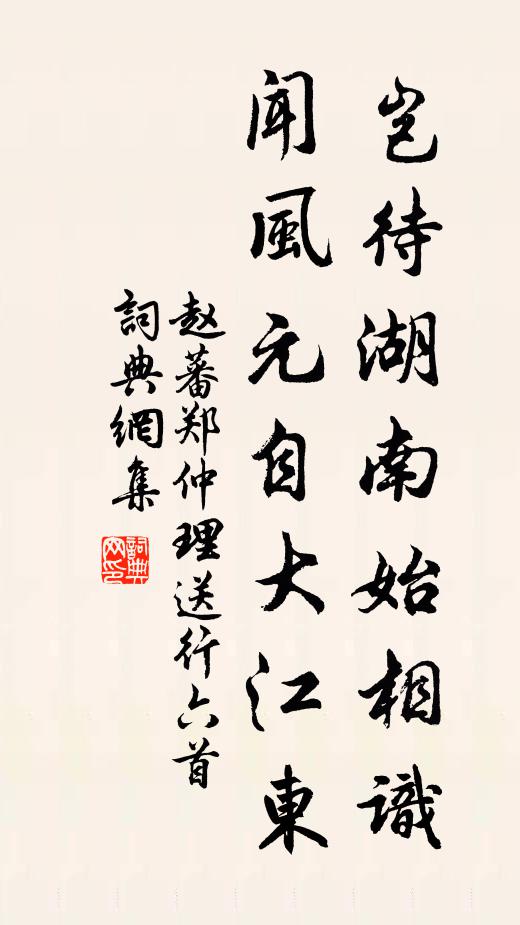 岂待湖南始相識
聞風元自大江東
赵蕃郑仲理送行六首
詞典網集
詞典網印